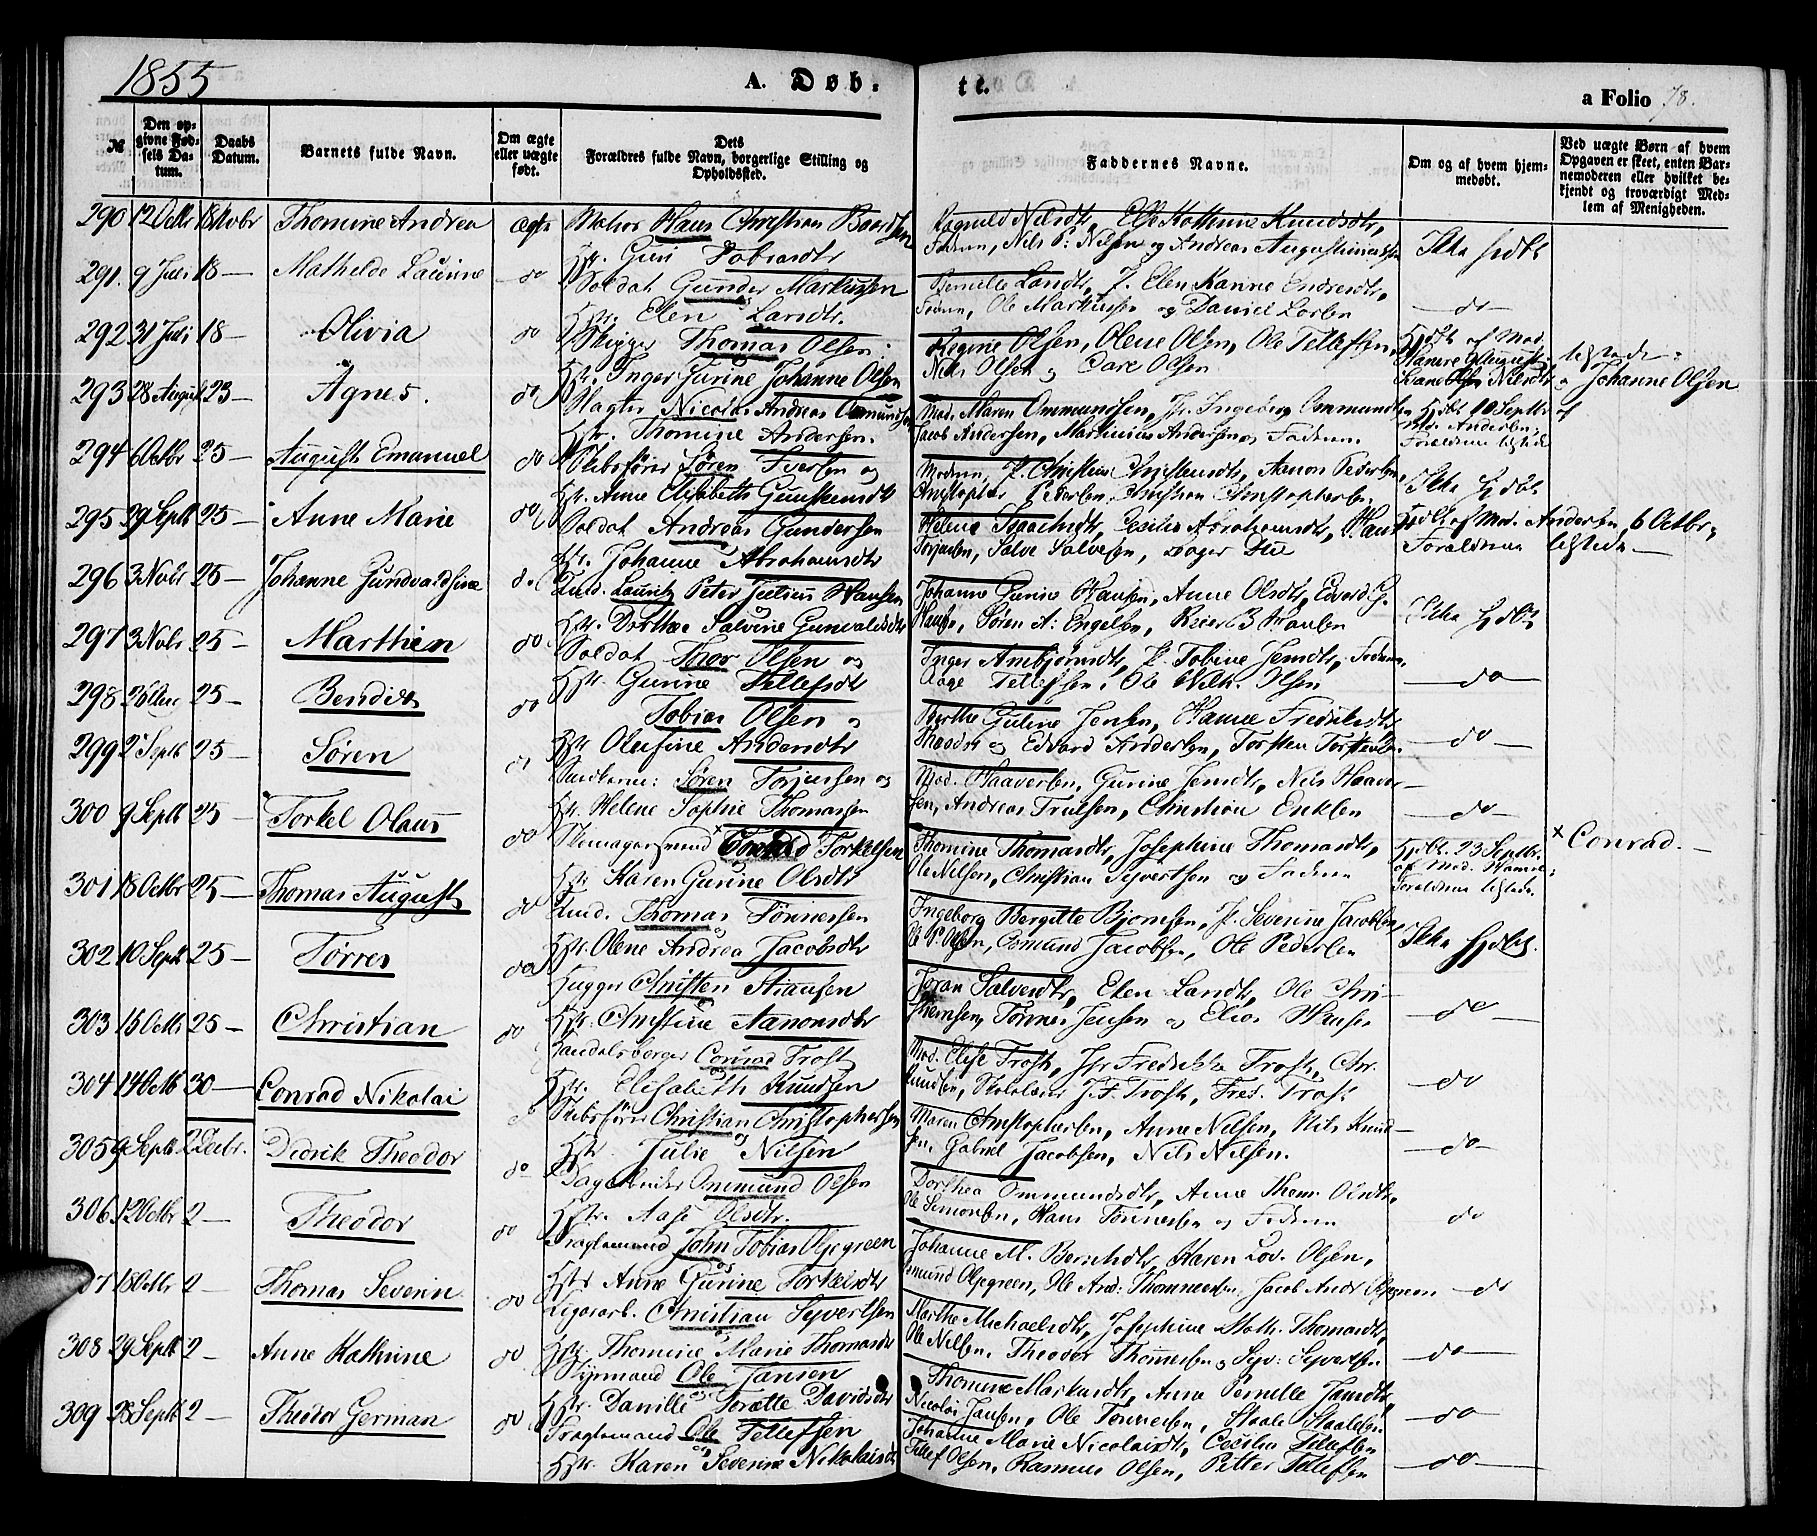 1855
A. Døb-
te.
a Folio 78.
№
Den op-
givne Fød-
sels Da-
tum.
Daabs
Datum.
Barnets fulde Navn.
Om ægte
eller uægte
født.
Dets
Forældres fulde Navn, borgerlige Stilling og
Opholdssted.
Faddernes Navne.
Om og af hvem hjem-
medøbt.
Ved uægte Børn af hvem
Opgaven er skeet, enten Bar-
nemoderen eller hvilket be-
kjendt og troværdigt Med-
lem af Menigheden.
290 12 Octbr 18 Novbr Thomine Andrea ægte Matros Hans Christian
Hstr. Guri Tobiasdtr
Ragnild Nilsdtr, Else Kathrine Knudsdtr,
Faderen, Nils P. Nilsen og Andreas
Ikke hjdbt
291. 9 Juli 18 — Mathilde Laurine do Soldat Gunder Markussen
Hstr. Elen Larsdtr.
Pernille Larsdtr, P. Elen Karine Endresdtr,
Faderen, Ole Markussen og Daniel Larsen
— do —
292 31 Juli 18 — Olivia do Skipper Thomas Olsen
Hstr. Inger Jurine Johanne Olsen
Regine Olsen, Olene Olsen, Ole Tellefsen,
Nils Olsen og Olsen
Hjdbt af Mad.
og Johanne Olsen
293 28 August 23 — Agnes. do Slagter Nicolai Andreas Omundsen
Hstr. Thomine Andersen.
Mad. Maren Ommundsen, Jfr. Ingeborg Ommundsen
Jacob Andersen, Martinius Andersen og Faderen
Hjdbt 10 Septbr af
Md. Andersen;
Forældrene tilstede
294 6 Octbr 25 — August Emanuel do Skibsfører Søren Iversen og
Hstr. Anne Elisabeth
Moderen, P. Christine Christensdtr, Aanon Pedersen
Christopher Pedersen, Christian Christophersen
Ikke Hjdbt
295 29 Septb 25 — Anne Marie do Soldat Andreas Gundersen
Hstr. Johanne Abrahamsdtr
Helene Isaachsdtr, Cecilie Abrahamsdtr, Hans
Torjussen, Salve Salvesen,
Hjdbt af Mad. Andersen, 6 Octbr,
Forældrene tilstede —
296 3 Novbr 25 — Johanne Gundvaldsine do Lauritz Peter Julius Hansen
Hstr. Dorthea Salvine Gunvaldsdtr
Johanne Hansen, Anne Olsdtr, Edvard G.
Hansen, Søren A: Engelsen, Reier B Hansen
Ikke Hjdbt
297 3 Novbr 25 — Marthin do Soldat Thor Olsen og
Hstr. Gurine Tellefsdtr
Inger Ambjørnsdtr, P. Tobine Jensdtr, Faderen,
Aage Tellefsen, Ole Wilh. Olsen
— do —
298 25 — Bendix do Tobias Olsen og
Hstr Olufine Andersdtr
Berthe Guline Jensen, Hanne Fredriksdtr
og Edvard Andersen, Torsten Torstensen
— do —
299 2 Septb 25 — Søren do Søren Torjussen og
Hstr. Helene Sophie Thomassen
Mad. Haaversen, Gurine Jensdtr, Nils Haaver-
sen, Andreas Truelsen, Christian Eriksen
— do —
300 9 Septb 25 — Torkel Olaus do Skomagersvend × Conrad Torkelsen
Hstr. Karen Gurine Olsdtr
Thomine Thomasdtr, Josephine Thomasdtr,
Ole Nilsen, Christian Syvertsen og Faderen
Hjdbt. 23 Septbr.
af Mad. Hansen;
Forældrene tilstede.
× Conrad. —
301 18 Octbr 25 — Thomas August do Thomas Tønnessen
Hstr. Olene Andrea Jacobsdtr
Ingeborg Bergitte Bjørnsen, P. Severine Jacobsen,
Ole P. Olsen, Osmund Jacobsen, Ole Pedersen
Ikke Hjdbt.
302 10 Septb 25 — Tørres do Christen
Hstr. Christine Aanonsdtr
Joran Salvesdtr, Elen Larsdtr, Ole Chri-
stiensen, Tønnes Jensen og Elias Hansen
— do —
303 15 Octb 25 — Christian do Handelsborger Conrad Frost
Hstr. Elisabeth Knudsen
Mad. Elise Frost, Jfr Fredrikke Frost, Chr.
Knudsen, Skolelærer J. F. Frost, Fred. Frost
— do
304 14 Octb 30 — Conrad Nikolai do Skibsfører Christian Christophersen
Hstr. Julie Nilsen
Maren Christophersen, Anne Nilsen, Nils Knud-
sen, Gabriel Jacobsen, Nils Nilsen.
— do
305 9 Septb 2 Decbr. Didrik Theodor do Ommund Olsen
Hstr. Aase Olsdtr.
Dorthea Ommundsdtr, Anne Thom. Olsdtr,
Ole Simonsen, Hans Tønnessen og Faderen
do
306 12 Octbr 2 — Theodor do Fragtemand John Tobias Oljegreen
Hstr Anne Gurine Torkelsdtr
Johanne M. Berntsdtr, Karen Lov. Olsen,
Osmund Oljegreen, Ole And. Thommesen, Jacob Andr Oljegreen
— do
307 18 Octbr 2 — Thomas Severin do Ligararb. Christian Syvertsen
Hstr. Thomine Marie Thomasdtr
Marthe Michaelsdtr, Josephine Math. Thomasdtr,
Ole Nilsen, Theodor Thommesen og Syv: Syvertsen
— do —
308 29 Septb 2 — Anne Kathrine do Styrmand Ole Jansen
Hstr. Danille Torette Davidsdtr
Thomine Markusdtr, Anne Pernille Jansdtr,
Nicolai Jansen, Ole Tønnessen, Staale Staalesen
— do —
309 28 Septb 2 — Theodor German do Fragtemand Ole Tellefsen
Hstr. Karen Severine Nikolaisdtr
Johanne Marie Nicolaisdtr, Cecilie Tellefsen
Tellef Olsen, Rasmus Olsen, Pitter Tellefsen
— do —